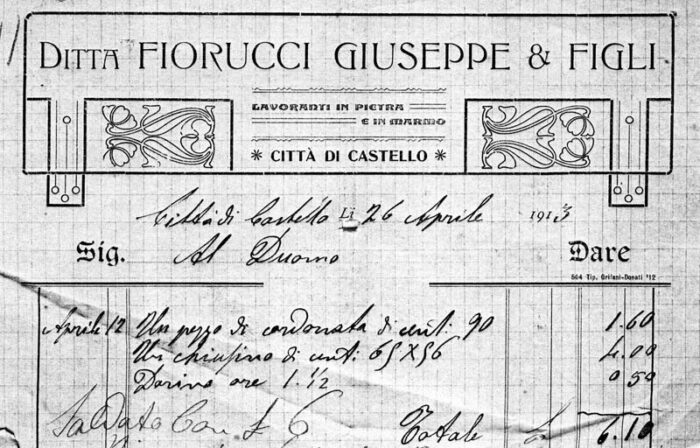 DITTA FIORUCCI GIUSEPPE & FIGLI
LAVORANTI IN PIETRA
E IN MARMO
* CITTÀ DI CASTELLO *
Città di Castello Li 26 Aprile 1913
Sig. Al Duomo Dare
564 Tip. Grifani-Donati '12
Aprile 12 Un pezzo di cordonata di cent: 90 1.60
Un chiusino di cent: 65X56 4.00
Dorino ore 1.½ 0 50
Saldato Con £ 6 Totale £ 6.10